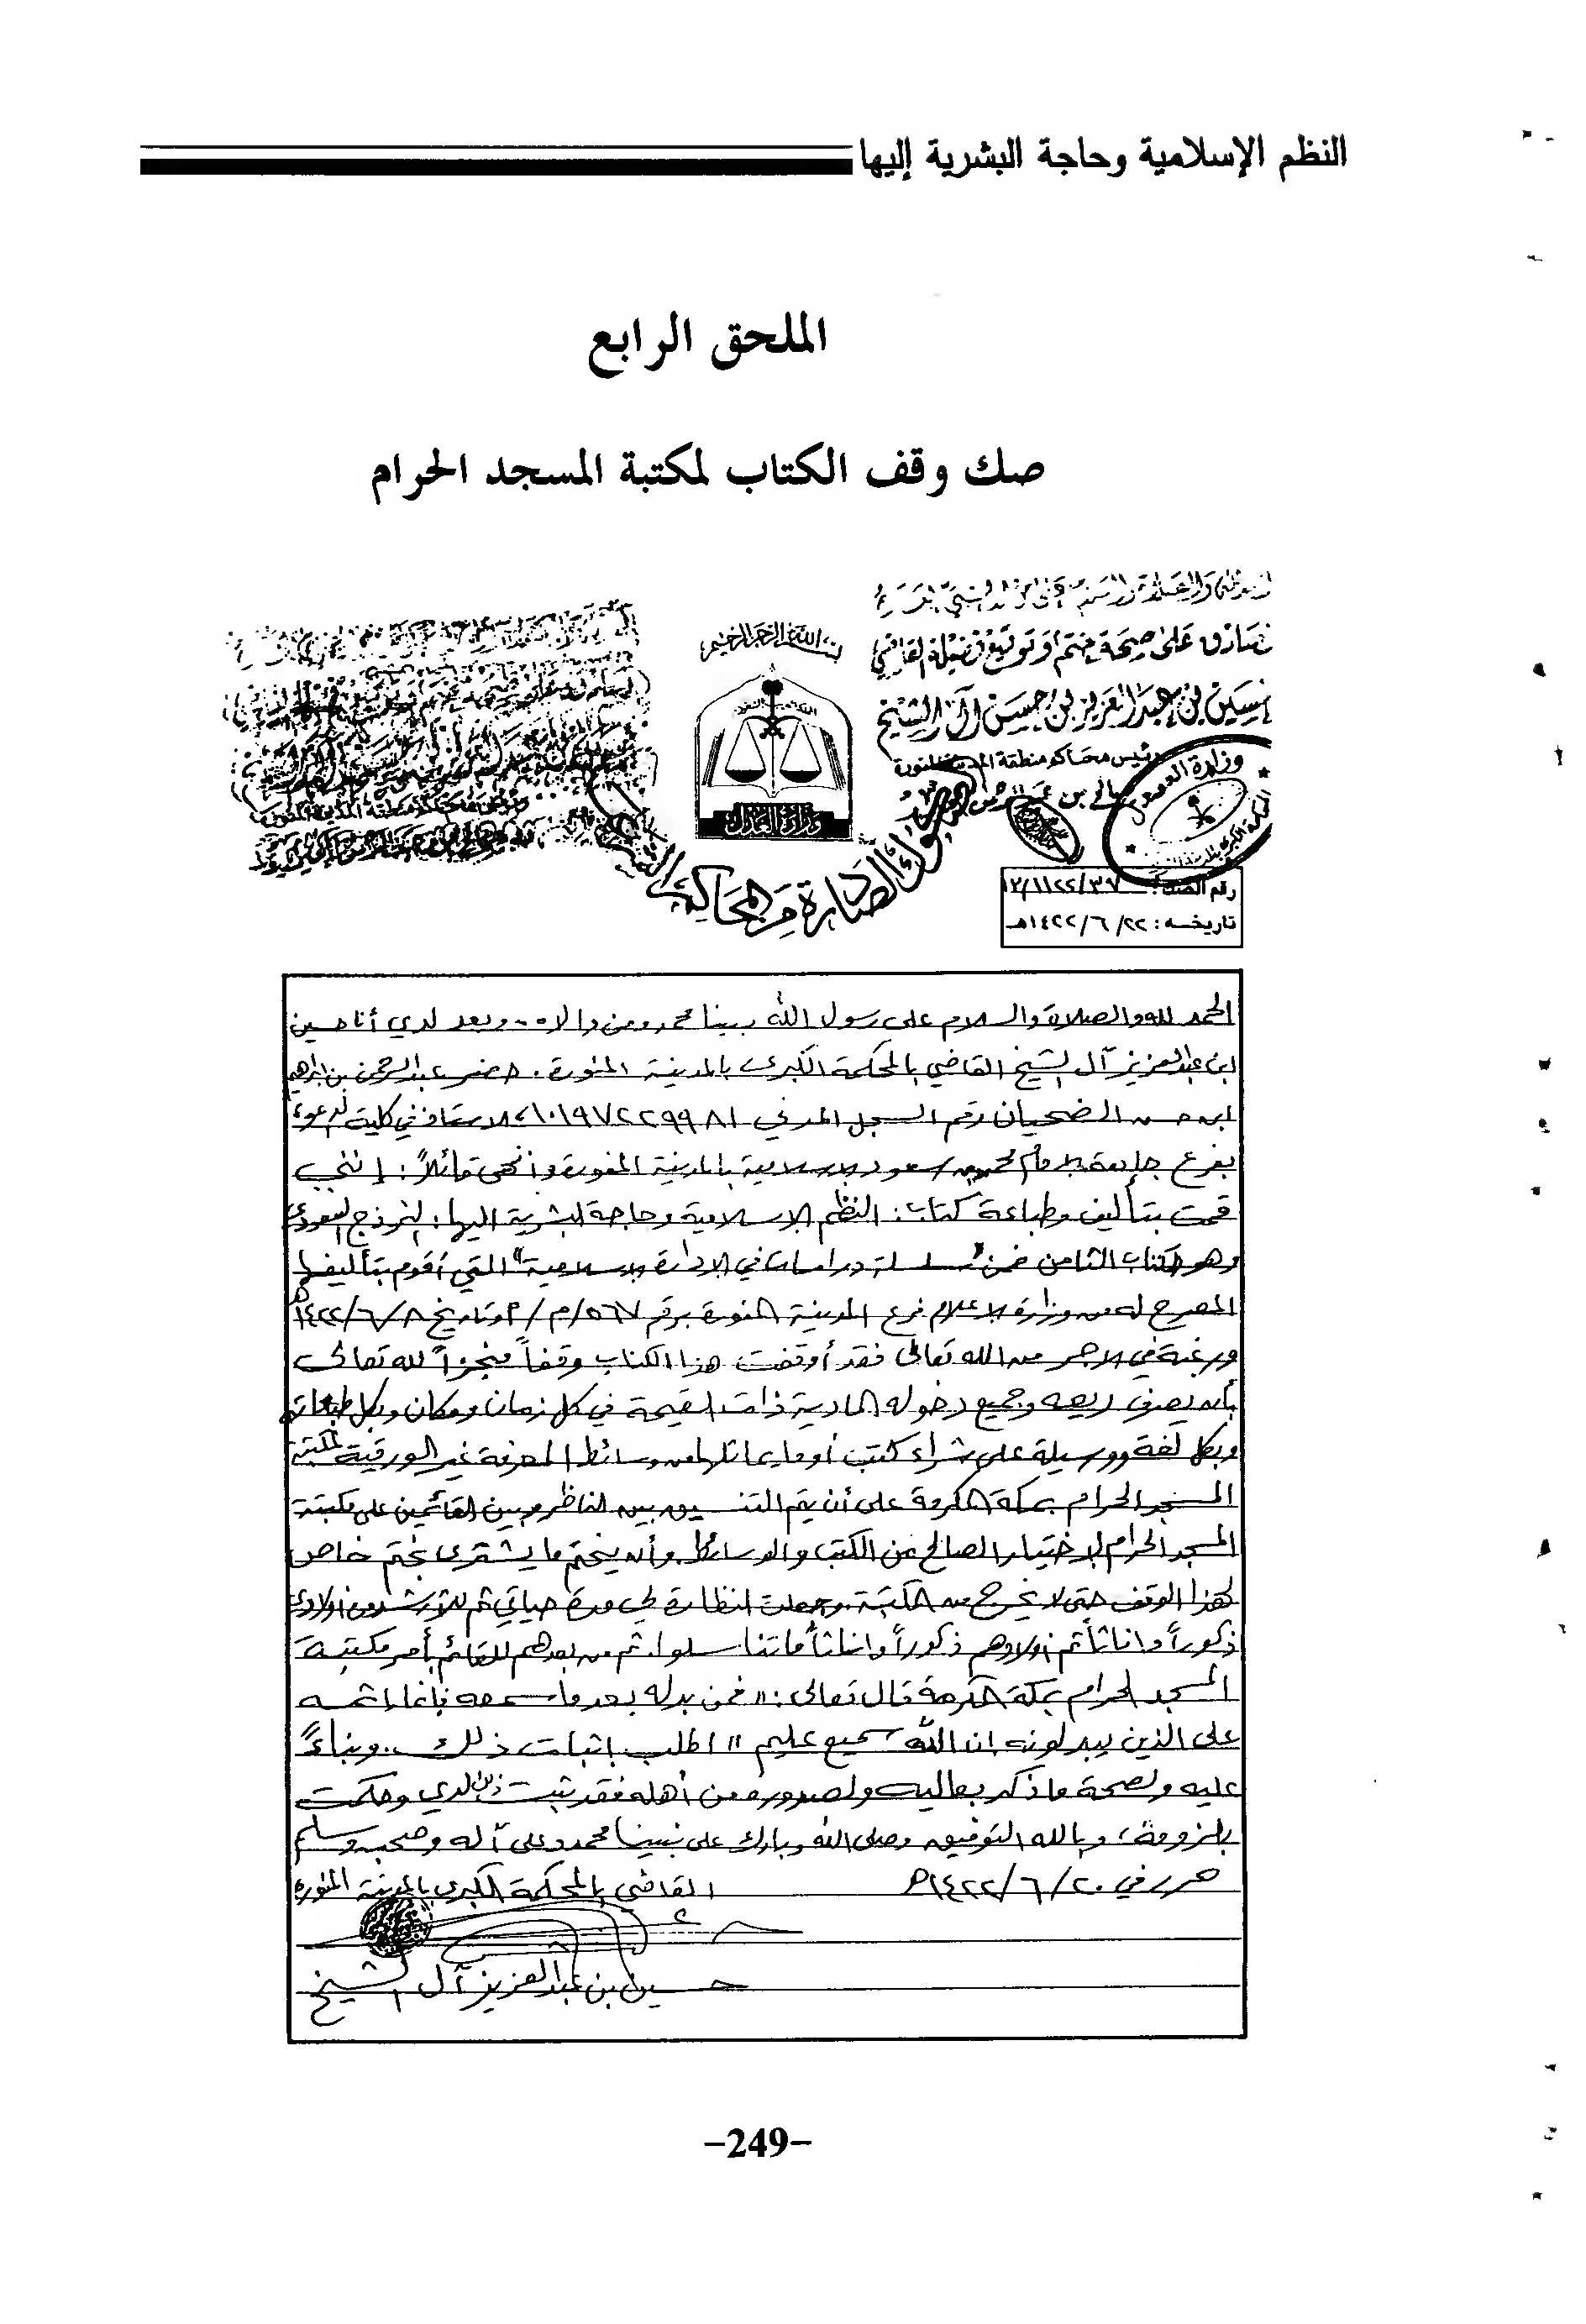 النظم الإسلامية وحاجة البشرية إليها
الملحق الرابع
صك وقف الكتاب لمكتبة المسجد الحرام
نصادق على صحة ختم وتوقيع فضيلة القاضي
حسين بن عبدالعزيز بن حسين آل الشيخ
رئيس محاكم منطقة المدينة المنورة
بسم الله الرحمن الرحيم
وزارة العدل
الصادرة من المحاكم
رقم الصك: ١٢/١١٢٤/٣٧
تاريخه: ١٤٢٢/٦/٢٢هـ
الحمد لله والصلاة والسلام على رسول الله نبينا محمد ومن والاه .. وبعد لدي أنا حسين
ابن عبدالعزيز آل الشيخ القاضي بالمحكمة الكبرى بالمدينة المنورة. حضر عبدالرحمن بن ابراهيم
ابن حسن الضحيان رقم السجل المدني ١٠١٩٧٢٢٩٩٨١ الاستاذ في كلية الدعوة
بفرع جامعة الامام محمد بن سعود الاسلامية بالمدينة المنورة وأنهى قائلاً: إنني
قمت بتأليف وطباعة كتاب: النظم الاسلامية وحاجة البشرية اليها: النموذج السعودي
وهو الكتاب الثامن ضمن "سلسلة دراسات في الادارة الاسلامية" التي أقوم بتأليفها
المصرح له من وزارة الاعلام فرع المدينة المنورة برقم ٥٦٧/م/م وتاريخ ١٤٢٢/٦/٨هـ
ورغبة في الاجر من الله تعالى فقد أوقفت هذا الكتاب وقفاً منجزاً لله تعالى
بأن يصرف ريعه وجميع دخوله المادية ذات القيمة في كل زمان ومكان وبكل طبعاته
وبكل لغة ووسيلة على شراء كتب أو ما يماثلها من وسائط المعرفة غير الورقية لمكتبة
المسجد الحرام بمكة المكرمة على أن يتم التنسيق بين الناظر وبين القائمين على مكتبة
المسجد الحرام لاختيار الصالح من الكتب والوسائط. وأن يختم ما يشترى بختم خاص
لهذا الوقف حتى لا يخرج من المكتبة. وجعلت النظارة لي مدة حياتي ثم للأرشد من أولادي
ذكوراً واناثاً ثم أولادهم ذكوراً واناثاً ما تناسلوا. ثم من بعدهم للقائم بأمر مكتبة
المسجد الحرام بمكة المكرمة قال تعالى: "فمن بدله بعدما سمعه فإنما اثمه
على الذين يبدلونه ان الله سميع عليم" اطلب اثبات ذلك. وبناءً
عليه ولصحة ما ذكر بعاليه ولصدوره من أهله فقد ثبت ذلك لدي وحكمت
بلزومه، وبالله التوفيق وصلى الله وبارك على نبينا محمد وعلى آله وصحبه وسلم
حرر في ١٤٢٢/٦/٢٠هـ القاضي بالمحكمة الكبرى بالمدينة المنورة
حسين بن عبدالعزيز آل الشيخ
–249–